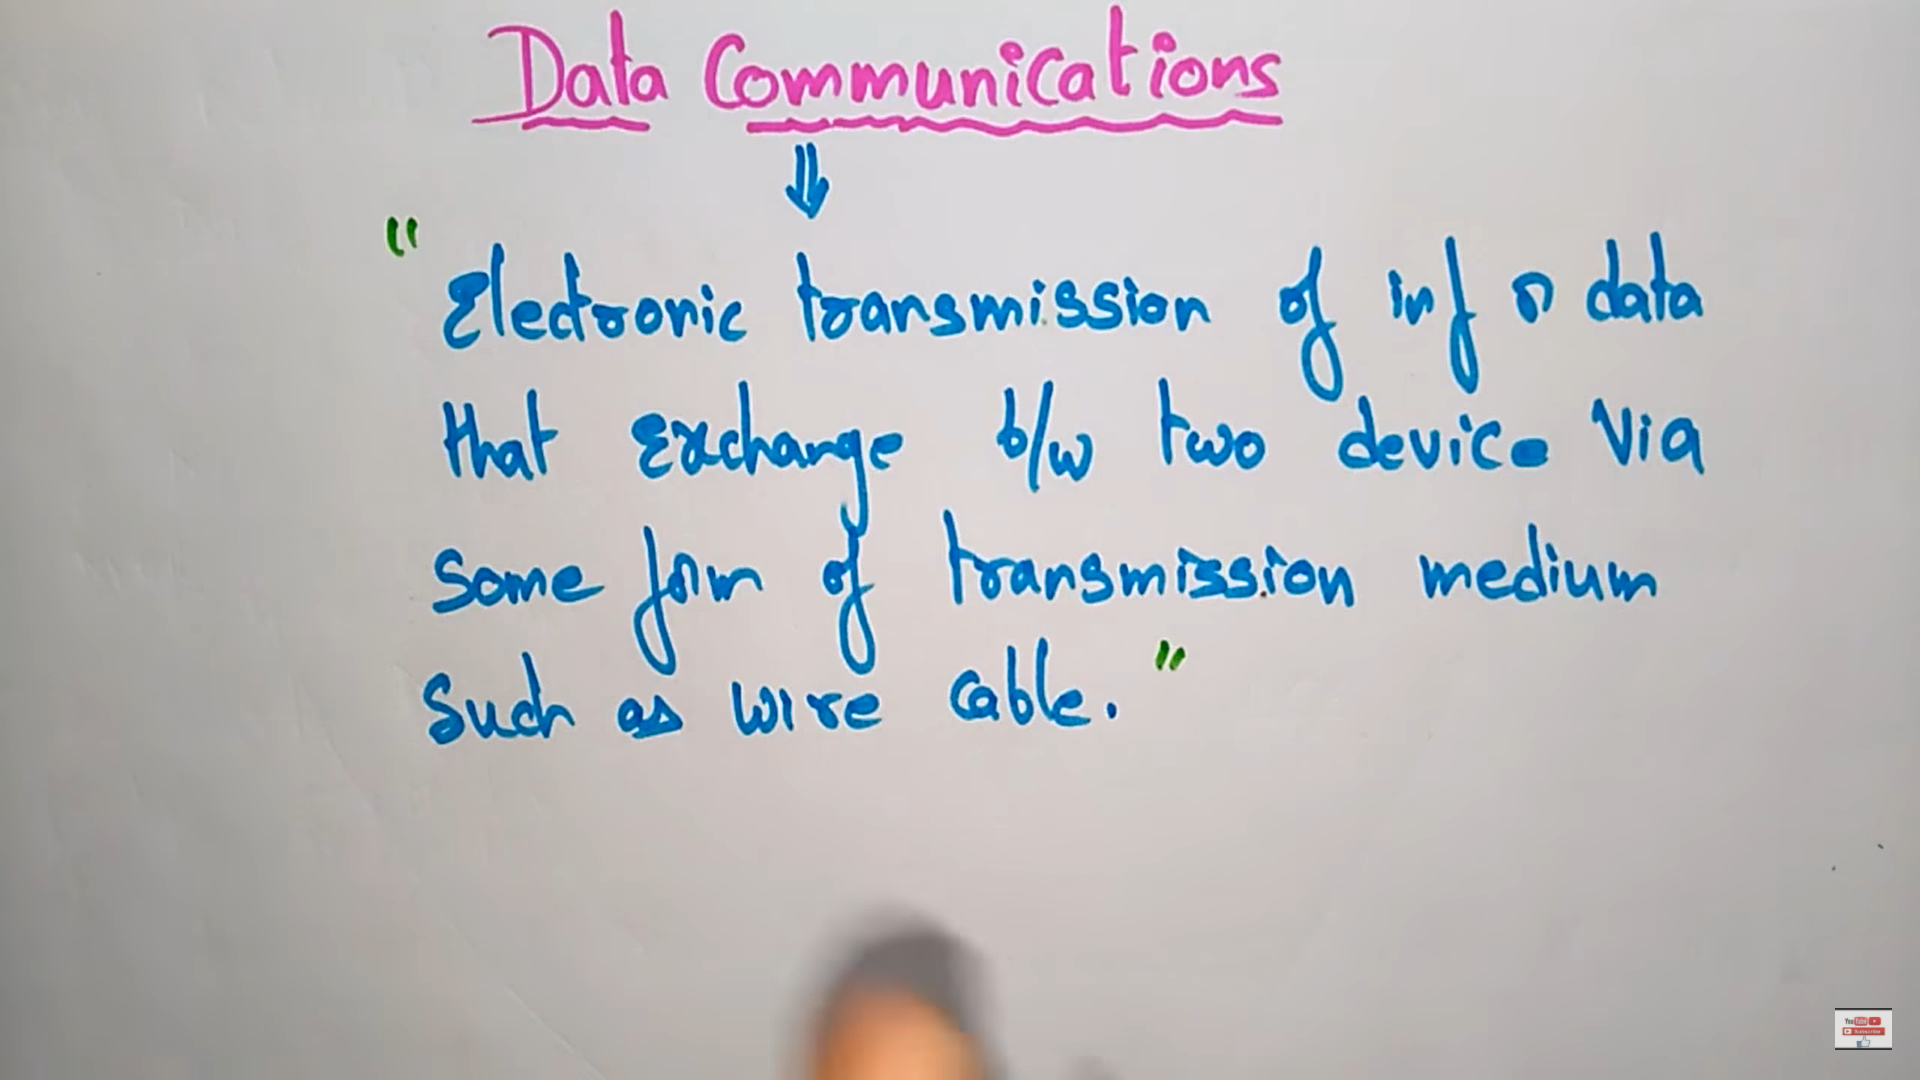 Data Communications
⇓
" Electronic transmission of inf or data
that exchange b/w two device via
some form of transmission medium
such as wire cable. "
YouTube
Subscribe